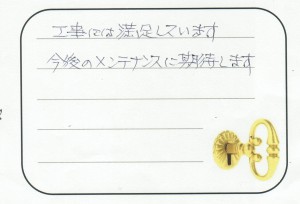 工事には満足しています
今後のメンテナンスに期待します